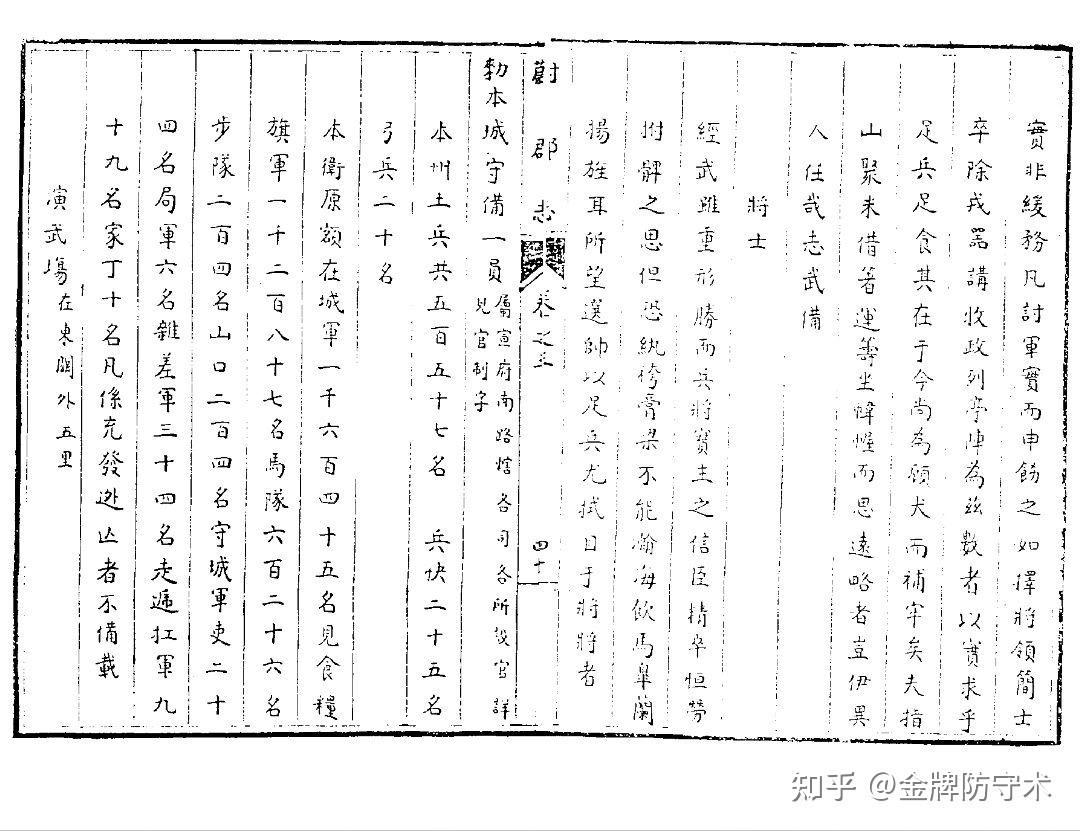 實非緩務凡討軍實而申飭之如擇將領簡士
卒除戎器講收政列亭陣為茲數者以實求乎
足兵足食其在于今尚為顧犬而補牢矣夫指
山聚米借箸運籌坐幃幄而思遠略者豈伊異
人任哉志武備
將士
經武雖重形勝而兵將寶主之信臣精卒恒勞
拊髀之思但恐紈袴膏粱不能瀚海飲馬皐蘭
揚旌耳所望選帥以足兵尤拭目于將將者
蔚郡志 卷之三 四十
勅本城守備一員 屬宣府南路轄各司各所設官詳
見官制字
本州土兵共五百五十七名 兵快二十五名
弓兵二十名
本衛原額在城軍一千六百四十五名見食糧
旗軍一千二百八十七名馬隊六百二十六名
步隊二百四名山口二百四名守城軍吏二十
四名局軍六名雜差軍三十四名走遞扛軍九
十九名家丁十名凡係充發逃亡者不備載
演武塲 在東關外五里
知乎 @金牌防守术